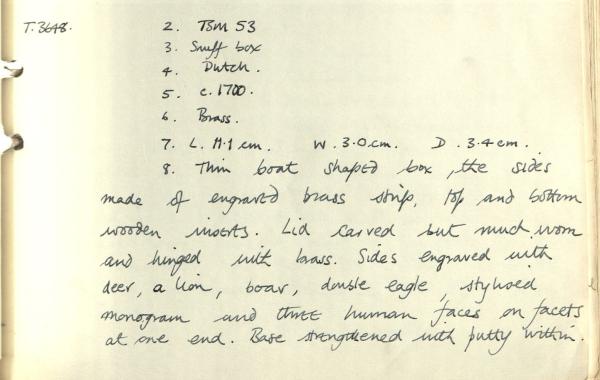 T. 3648. 2. TSM 53
3. Snuff box
4. Dutch.
5. c. 1700.
6. Brass.
7. L. 11.1 cm. W. 3.0 cm. D. 3.4 cm.
8. Thin boat shaped box, the sides
made of engraved brass strip, top and bottom
wooden inserts. Lid carved but much worn
and hinged with brass. Sides engraved with
deer, a lion, boar, double eagle, stylised
monogram and three human faces on facets
at one end. Base strengthened with putty within.